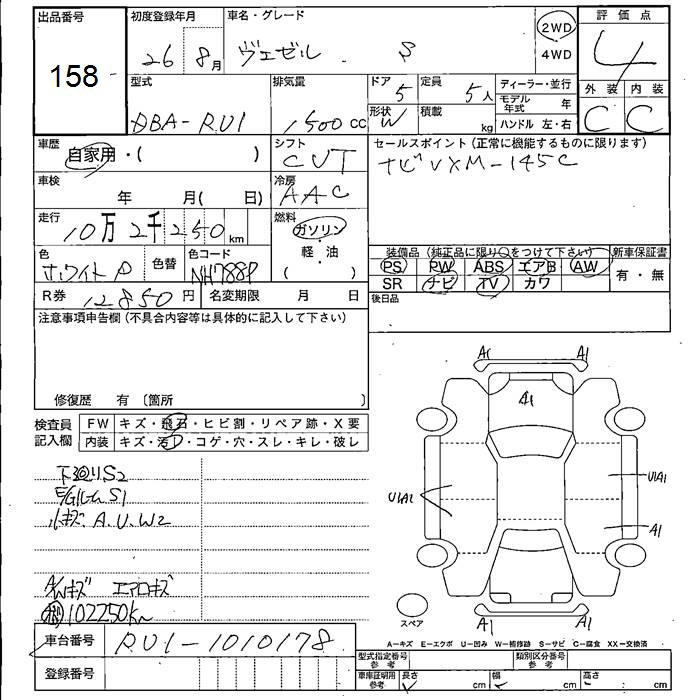 出品番号
158
初度登録年月
26 8月
車名・グレード
ヴェゼル S
2WD
4WD
評価点
4
外装 内装
C C
型式
DBA-RU1
排気量
1500cc
ドア 5
形状 W
定員 5人
積載 kg
ディーラー・並行
モデル年式 年
ハンドル 左・右
車歴
自家用・( )
シフト
CVT
セールスポイント(正常に機能するものに限ります)
ナビVXM-145C
車検 年 月( 日)
冷房
AAC
走行
10万2千250km
燃料
ガソリン
軽・油
( )
色
ホワイトP
色替
色コード
NH788P
装備品(純正品に限り○をつけて下さい)
新車保証書
PS PW ABS エアB AW
SR ナビ TV カワ
有・無
R券 12850円
名変期限 月 日
後日品
注意事項申告欄(不具合内容等は具体的に記入して下さい)
修復歴 有 〔箇所 〕
検査員記入欄
FW キズ・飛石・ヒビ割・リペア跡・X要
内装 キズ・汚レ・コゲ・穴・スレ・キレ・破レ
下廻りS2
E/GルームS1
小キズ.A.U.W2
A/Wキズ エアロキズ
102250Km
車台番号 RU1-1010178
登録番号
A1 A1
A1
U1A1
U1A1
A1
A1 A1
スペア
A-キズ E-エクボ U-凹み W-補修跡 S-サビ C-腐食 XX-交換済
型式指定番号 参考
類別区分番号 参考
車庫証明用 参考
長さ cm 幅 cm 高さ cm